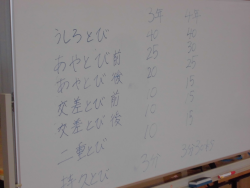 3年 4年
うしろとび 40 40
あやとび前 25 30
あやとび後 20 25
交差とび前 10 15
交差とび後 5
二重とび 10 15
持久とび